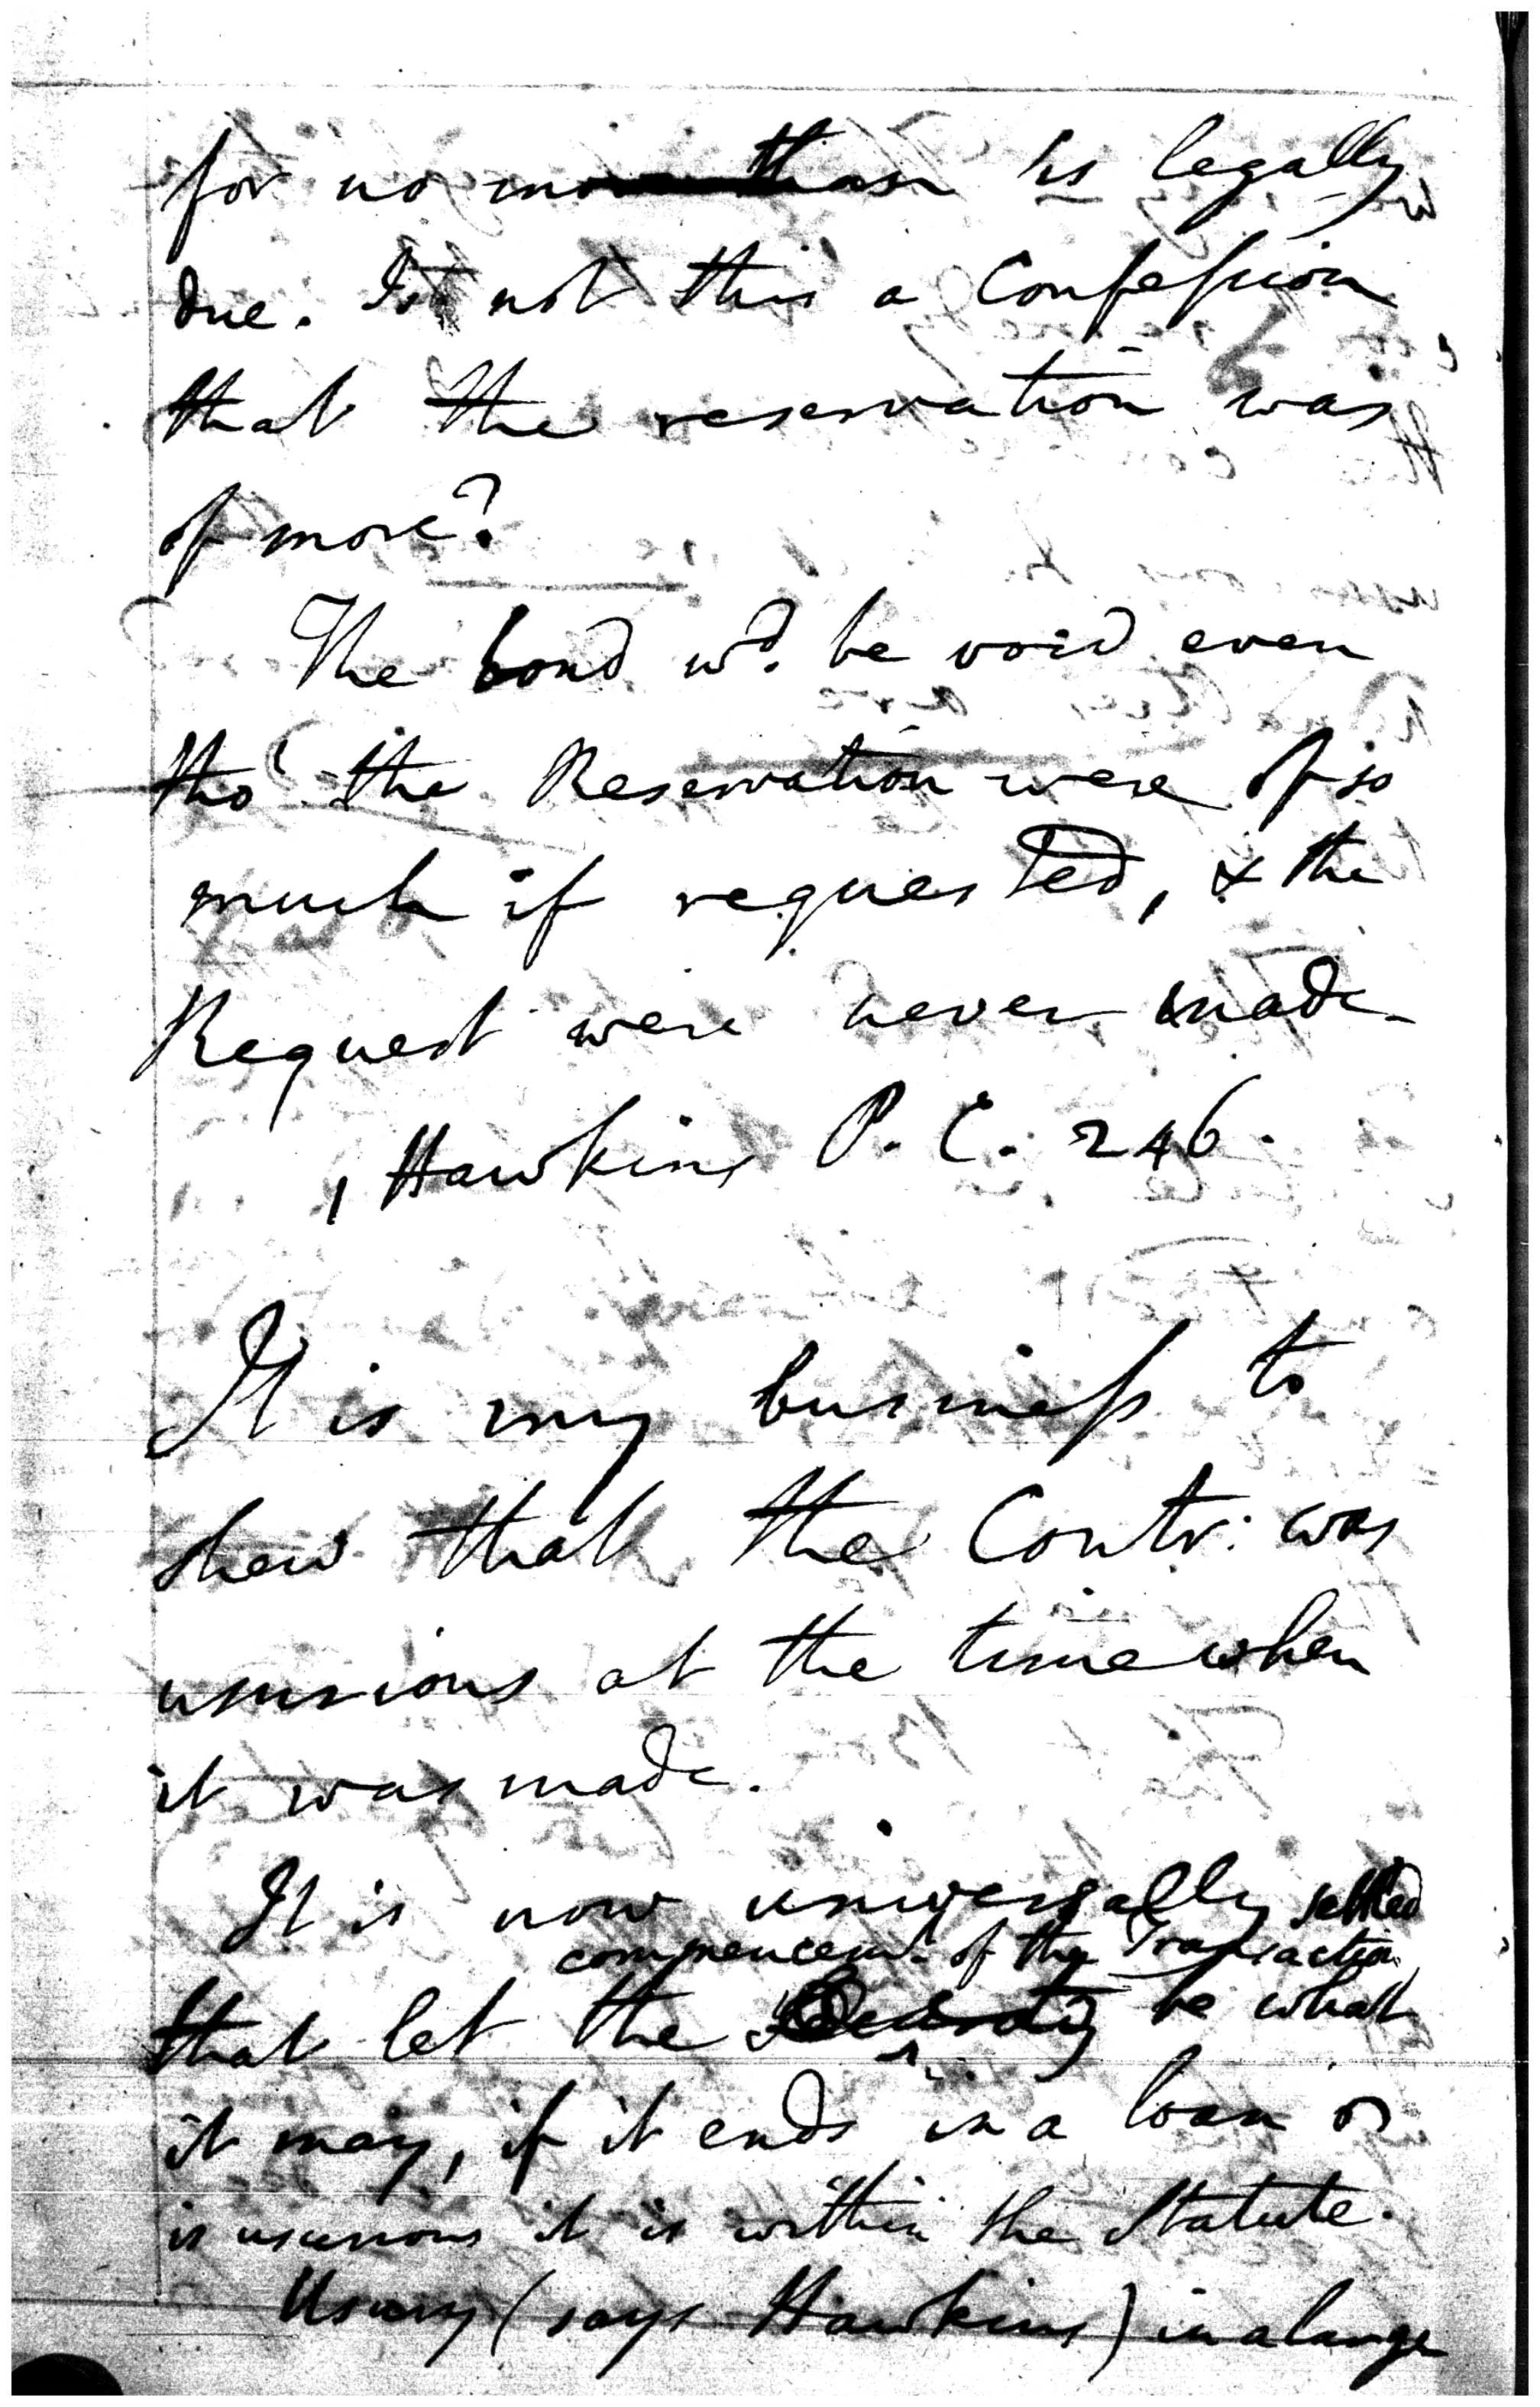 for no more than is legally
due. Is not this a Confession
that the reservation was
of more?
The bond wd. be void even
tho' the Reservation were of so
much if requested, & the
Request were never made
1 Hawkins P. C. 246.
It is my business to
shew that the Contr: was
usurious at the time when
it was made.
It is now universally settled
commencemt. of the Transaction
that let the be what
it may, if it ends in a loan &
is usurious it is within the Statute.
Usury (says Hawkins) in a large